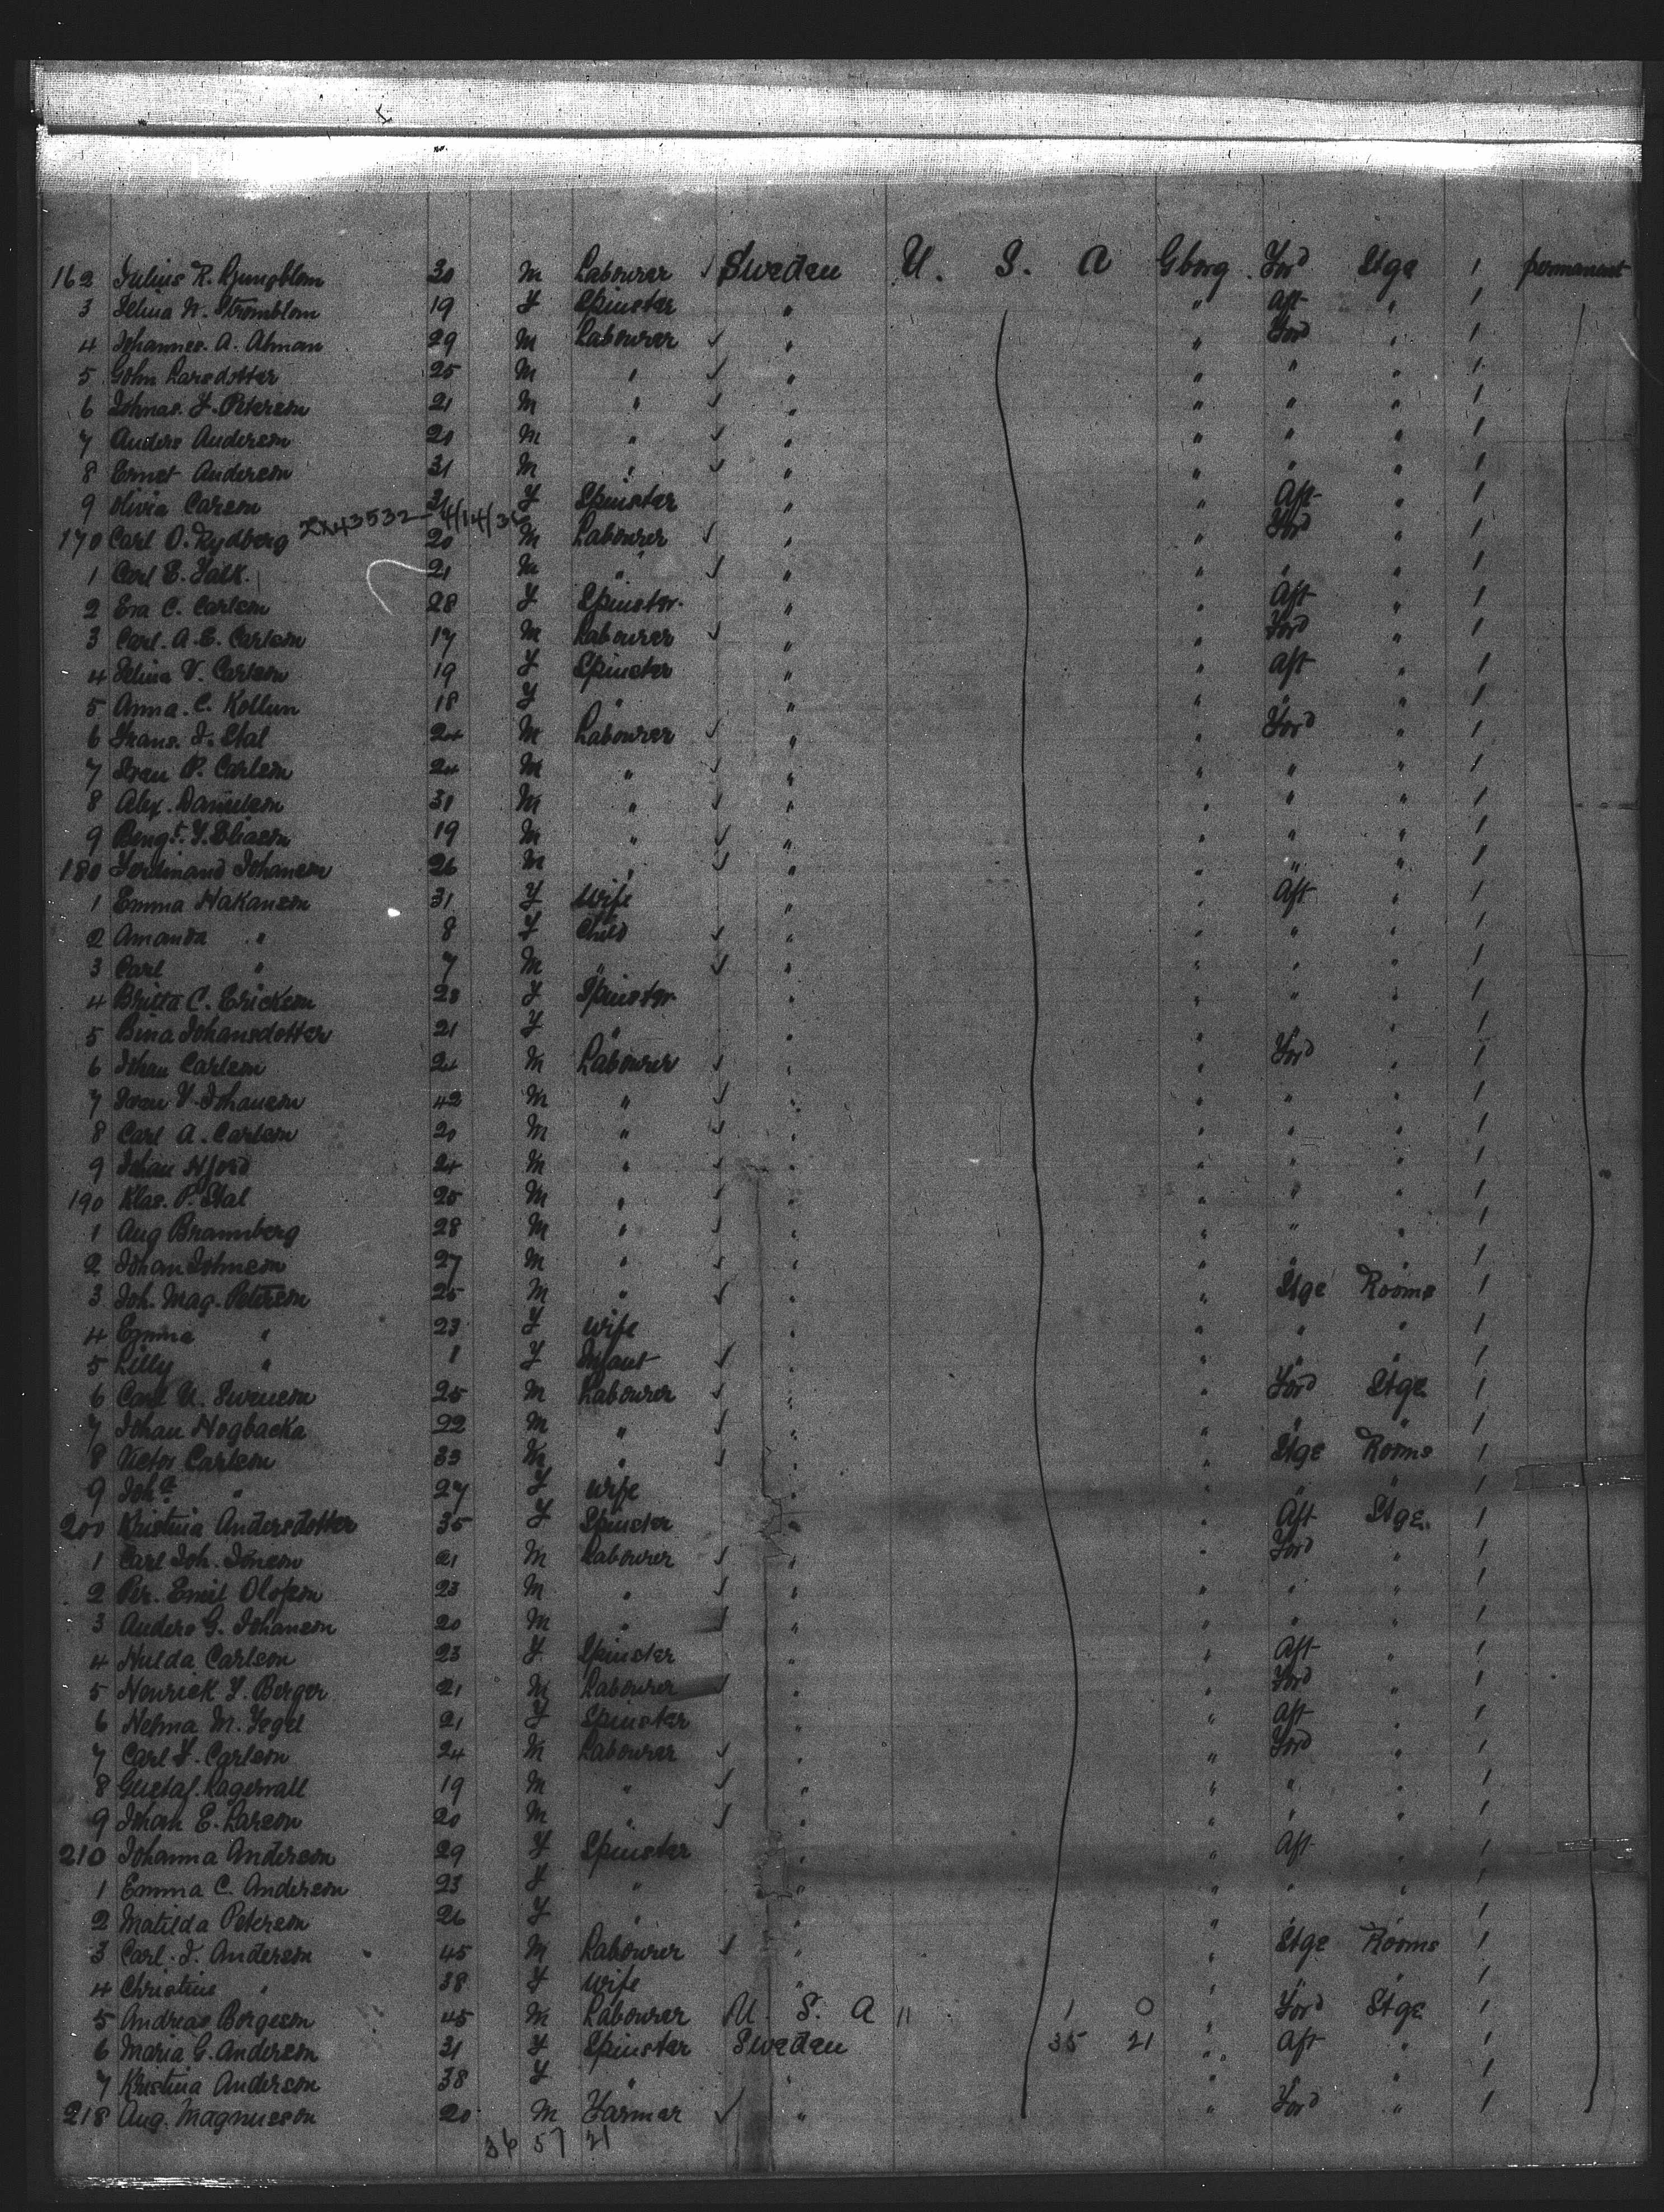 162 Julius R. Ljungblom 30 M Labourer ✓ Sweden U. S. A Gborg. Ford Stge 1 permanent
3 Selma W. Stromblom 19 F Spinster " " Aft " 1
4 Johannes. A. Ahman 29 M Labourer ✓ " " Ford " 1
5 John Larsdotter 25 M " ✓ " " " " 1
6 Johnas. F. Peterson 21 M " ✓ " " " " 1
7 Anders Anderson 20 M " ✓ " " " " 1
8 Ernst Anderson 31 M " ✓ " " " " 1
9 Olivia Carson F Spinster " " Aft " 1
2X43532-4/14/
170 Carl O. Rydberg 20 M Labourer ✓ " " Ford " 1
1 Carl E. Falk. 21 M " ✓ " " " " 1
2 Eva C. Carlson 28 F Spinster. " " Aft " 1
3 Carl. A. E. Carlson 17 M Labourer ✓ " " Ford " 1
4 Selma V. Carlson 19 F Spinster " " Aft " 1
5 Anna. C. Kollun 18 F " " " " " 1
6 Frans. J. Stal 24 M Labourer ✓ " " Ford " 1
7 Svan P. Carlson 24 M " ✓ " " " " 1
8 Alex. Danielson 31 M " ✓ " " " " 1
9 Bengt. F. Eliason 19 M " ✓ " " " " 1
180 Ferdinand Johanson 26 M " ✓ " " " " 1
1 Emma Hakanson 31 F Wife " " Aft " 1
2 Amanda " 8 F Child ✓ " " " " 1
3 Carl " 7 M " ✓ " " " " 1
4 Britta C. Erickson 28 F Spinster " " " " 1
5 Bina Johansdotter 21 F " " " " " 1
6 Johan Carlson 24 M Labourer ✓ " " Ford " 1
7 Svan F. Johanson 42 M " ✓ " " " " 1
8 Carl A. Carlson 20 M " ✓ " " " " 1
9 Johan Hjord 24 M " ✓ " " " " 1
190 Klas. P. Stal 25 M " ✓ " " " " 1
1 Aug Brannberg 28 M " ✓ " " " " 1
2 Johan Johnson 27 M " ✓ " " " " 1
3 Joh. Mag. Peterson 25 M " ✓ " " Stge Rooms 1
4 Emma " 23 F Wife " " " " 1
5 Lilly " 1 F Infant ✓ " " " " 1
6 Carl U. Swenson 25 M Labourer ✓ " " Ford Stge 1
7 Johan Hogbacka 22 M " ✓ " " " " 1
8 Victor Carlson 33 M " ✓ " " Stge Rooms 1
9 Joha " 27 F Wife " " " " 1
200 Kristina Andersdotter 35 F Spinster " " Aft Stge. 1
1 Carl Joh. Jonson 21 M Labourer ✓ " " Ford " 1
2 Per. Emil Olofson 23 M " ✓ " " " " 1
3 Anders G. Johanson 20 M " ✓ " " " " 1
4 Hulda Carlson 23 F Spinster " " Aft " 1
5 Henrick F. Berger 21 M Labourer ✓ " " Ford " 1
6 Helma M. Fegel 21 F Spinster " " Aft " 1
7 Carl F. Carlson 24 M Labourer ✓ " " Ford " 1
8 Gustaf. Lagervall 19 M " ✓ " " " " 1
9 Johan E. Larson 20 M " ✓ " " " " 1
210 Johanna Anderson 29 F Spinster " " Aft " 1
1 Emma C. Anderson 23 F " " " " " 1
2 Matilda Peterson 26 F " " " " " 1
3 Carl. J. Anderson 45 M Labourer ✓ " " Stge Rooms 1
4 Christine " 38 F Wife " " " " 1
5 Andreas Borgeson 45 M Labourer U. S. A " 1 0 " Ford Stge 1
6 Maria G. Anderson 31 F Spinster Sweden 35 21 " Aft " 1
7 Kristina Anderson 38 F " " " " " 1
218 Aug. Magnusson 20 M Farmer ✓ " " Ford " 1
36 57 21